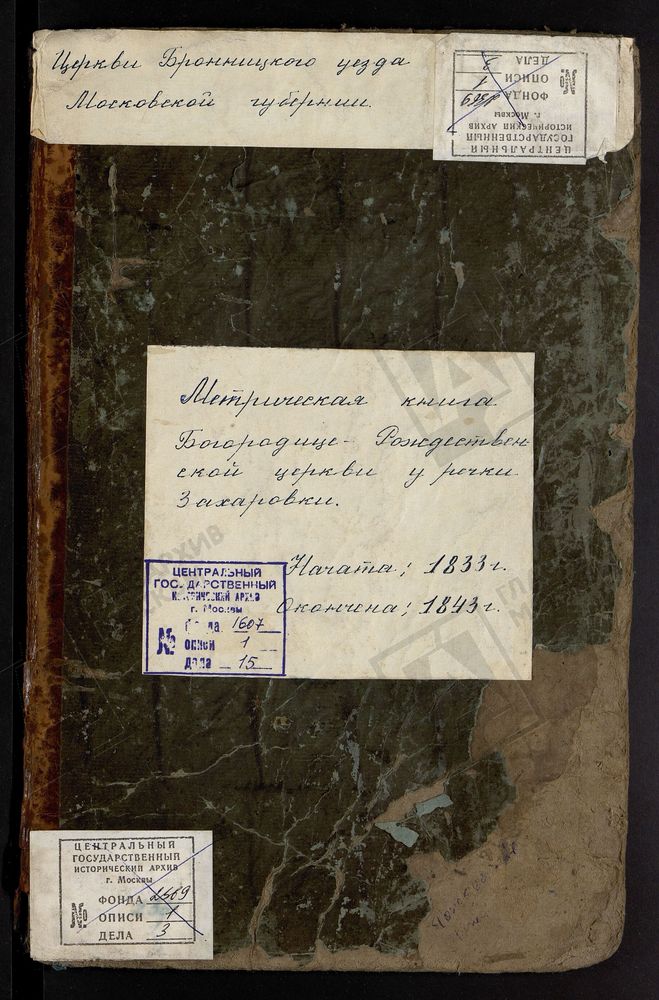 Церкви Бронницкого уезда
Московской губернии.
ЦЕНТРАЛЬНЫЙ
ГОСУДАРСТВЕННЫЙ
ИСТОРИЧЕСКИЙ АРХИВ
г. Москвы
№
ФОНДА
ОПИСИ 1
ДЕЛА 3
Метрическая книга
Богородице- Рождествен
ской церкви у речки
Захаровки.
Начата; 1833 г.
Окончена; 1843 г.
ЦЕНТРАЛЬНЫЙ
ГОСУДАРСТВЕННЫЙ
ИСТОРИЧЕСКИЙ АРХИВ
г. Москвы
№
фонда 1607
описи 1
дела 15
ЦЕНТРАЛЬНЫЙ
ГОСУДАРСТВЕННЫЙ
ИСТОРИЧЕСКИЙ АРХИВ
г. Москвы
№
ФОНДА 2569
ОПИСИ 1
ДЕЛА 3